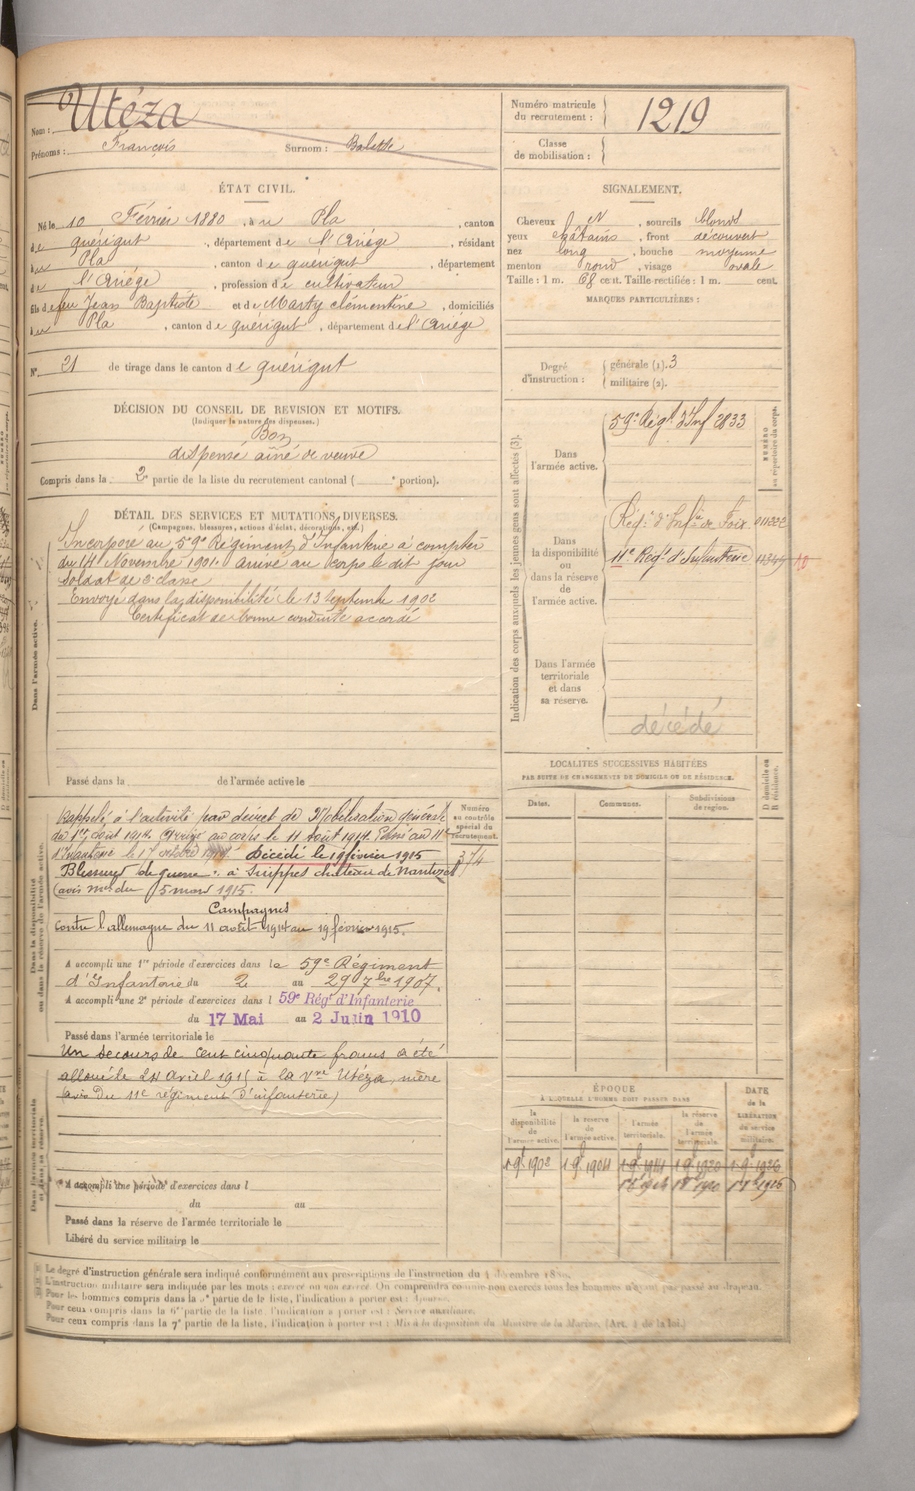 Nom : Utéza
Prénoms : François Surnom : Balette
Numéro matricule
du recrutement : 1219
Classe
de mobilisation :
ÉTAT CIVIL.
Né le 10 Février 1880, au Pla, canton
de quérigut, département de l'Ariége, résidant
au Pla, canton de quérigut, département
de l'Ariége, profession de cultivateur
fils de feu Jean Baptiste et de Marty clémentine, domiciliés
au Pla, canton de quérigut, département de l'Ariége
N° 21 de tirage dans le canton de quérigut
SIGNALEMENT.
Cheveux et, sourcils blonds
yeux châtains, front découvert
nez long, bouche moyenne
menton rond, visage ovale
Taille : 1 m. 68 cent. Taille rectifiée : 1 m. cent.
MARQUES PARTICULIÈRES :
Degré
d'instruction :
générale (1). 3
militaire (2).
DÉCISION DU CONSEIL DE REVISION ET MOTIFS.
(Indiquer la nature des dispenses.)
Bon
dispensé aîné de veuve
Compris dans la 2e partie de la liste du recrutement cantonal ( e portion).
DÉTAIL DES SERVICES ET MUTATIONS DIVERSES.
(Campagnes, blessures, actions d'éclat, décorations, etc.)
Dans l'armée active.
Incorporé au 59e Régiment d'Infanterie à compter
du 14 Novembre 1901. arrivé au corps le dit jour
Soldat de 2e classe
Envoyé dans la disponibilité le 13 Septembre 1902
Certificat de bonne conduite accordé
Passé dans la de l'armée active le
Indication des corps auxquels les jeunes gens sont affectés (3).
NUMÉRO
au répertoire du corps.
Dans
l'armée active.
59e Régt d'Inf 2833
Dans
la disponibilité
ou
dans la réserve
de
l'armée active.
Régt d'Infie de Foix 011222
11e Régt d'Infanterie
Dans l'armée
territoriale
et dans
sa réserve.
décédé
LOCALITÉS SUCCESSIVES HABITÉES
PAR SUITE DE CHANGEMENTS DE DOMICILE OU DE RÉSIDENCE.
D domicile ou
R résidence.
Dates.
Communes.
Subdivisions
de région.
Dans la disponibilité
ou dans la réserve de l'armée active.
Numéro
au contrôle
spécial du
recrutement.
374
Rappelé à l'activité par décret de Mobilisation générale
du 1er août 1914. Arrivé au corps le 11 août 1914. Passé au 11e
d'Infanterie le 17 octobre 1914. Décédé le 19 février 1915
Blessures de guerre à Suippes château de Nantivet
(avis mel du 5 mars 1915.
Campagnes
contre l'allemagne du 11 août 1914 au 19 février 1915.
A accompli une 1re période d'exercices dans le 59e Régiment
d'Infanterie du 2 au 29 7bre 1907.
A accompli une 2e période d'exercices dans l 59e Régt d'Infanterie
du 17 Mai au 2 Juin 1910
Passé dans l'armée territoriale le
Un secours de cent cinquante francs a été
alloué le 24 avril 1915 à la Vve Utéza, mère
(avis du 11e régiment d'infanterie)
Dans l'armée territoriale
et dans sa réserve.
A accompli une période d'exercices dans l
du au
Passé dans la réserve de l'armée territoriale le
Libéré du service militaire le
ÉPOQUE
À LAQUELLE L'HOMME DOIT PASSER DANS
DATE
de la
LIBÉRATION
du service
militaire.
la
disponibilité
de
l'armée active.
la réserve
de
l'armée active.
l'armée
territoriale.
la réserve
de
l'armée
territoriale.
1 9e 1902 1 9e 1904 1 9e 1914 1 9e 1920 1 9e 1926
Le degré d'instruction générale sera indiqué conformément aux prescriptions de l'instruction du 4 décembre 1889.
L'instruction militaire sera indiquée par les mots : exercé ou non exercé. On comprendra comme non exercés tous les hommes n'ayant pas passé au drapeau.
Pour les hommes compris dans la partie de la liste, l'indication à porter est :
Pour ceux compris dans la 6e partie de la liste, l'indication à porter est : Service auxiliaire.
Pour ceux compris dans la 7e partie de la liste, l'indication à porter est : Mis à la disposition du Ministre de la Marine. (Art. 4 de la loi.)